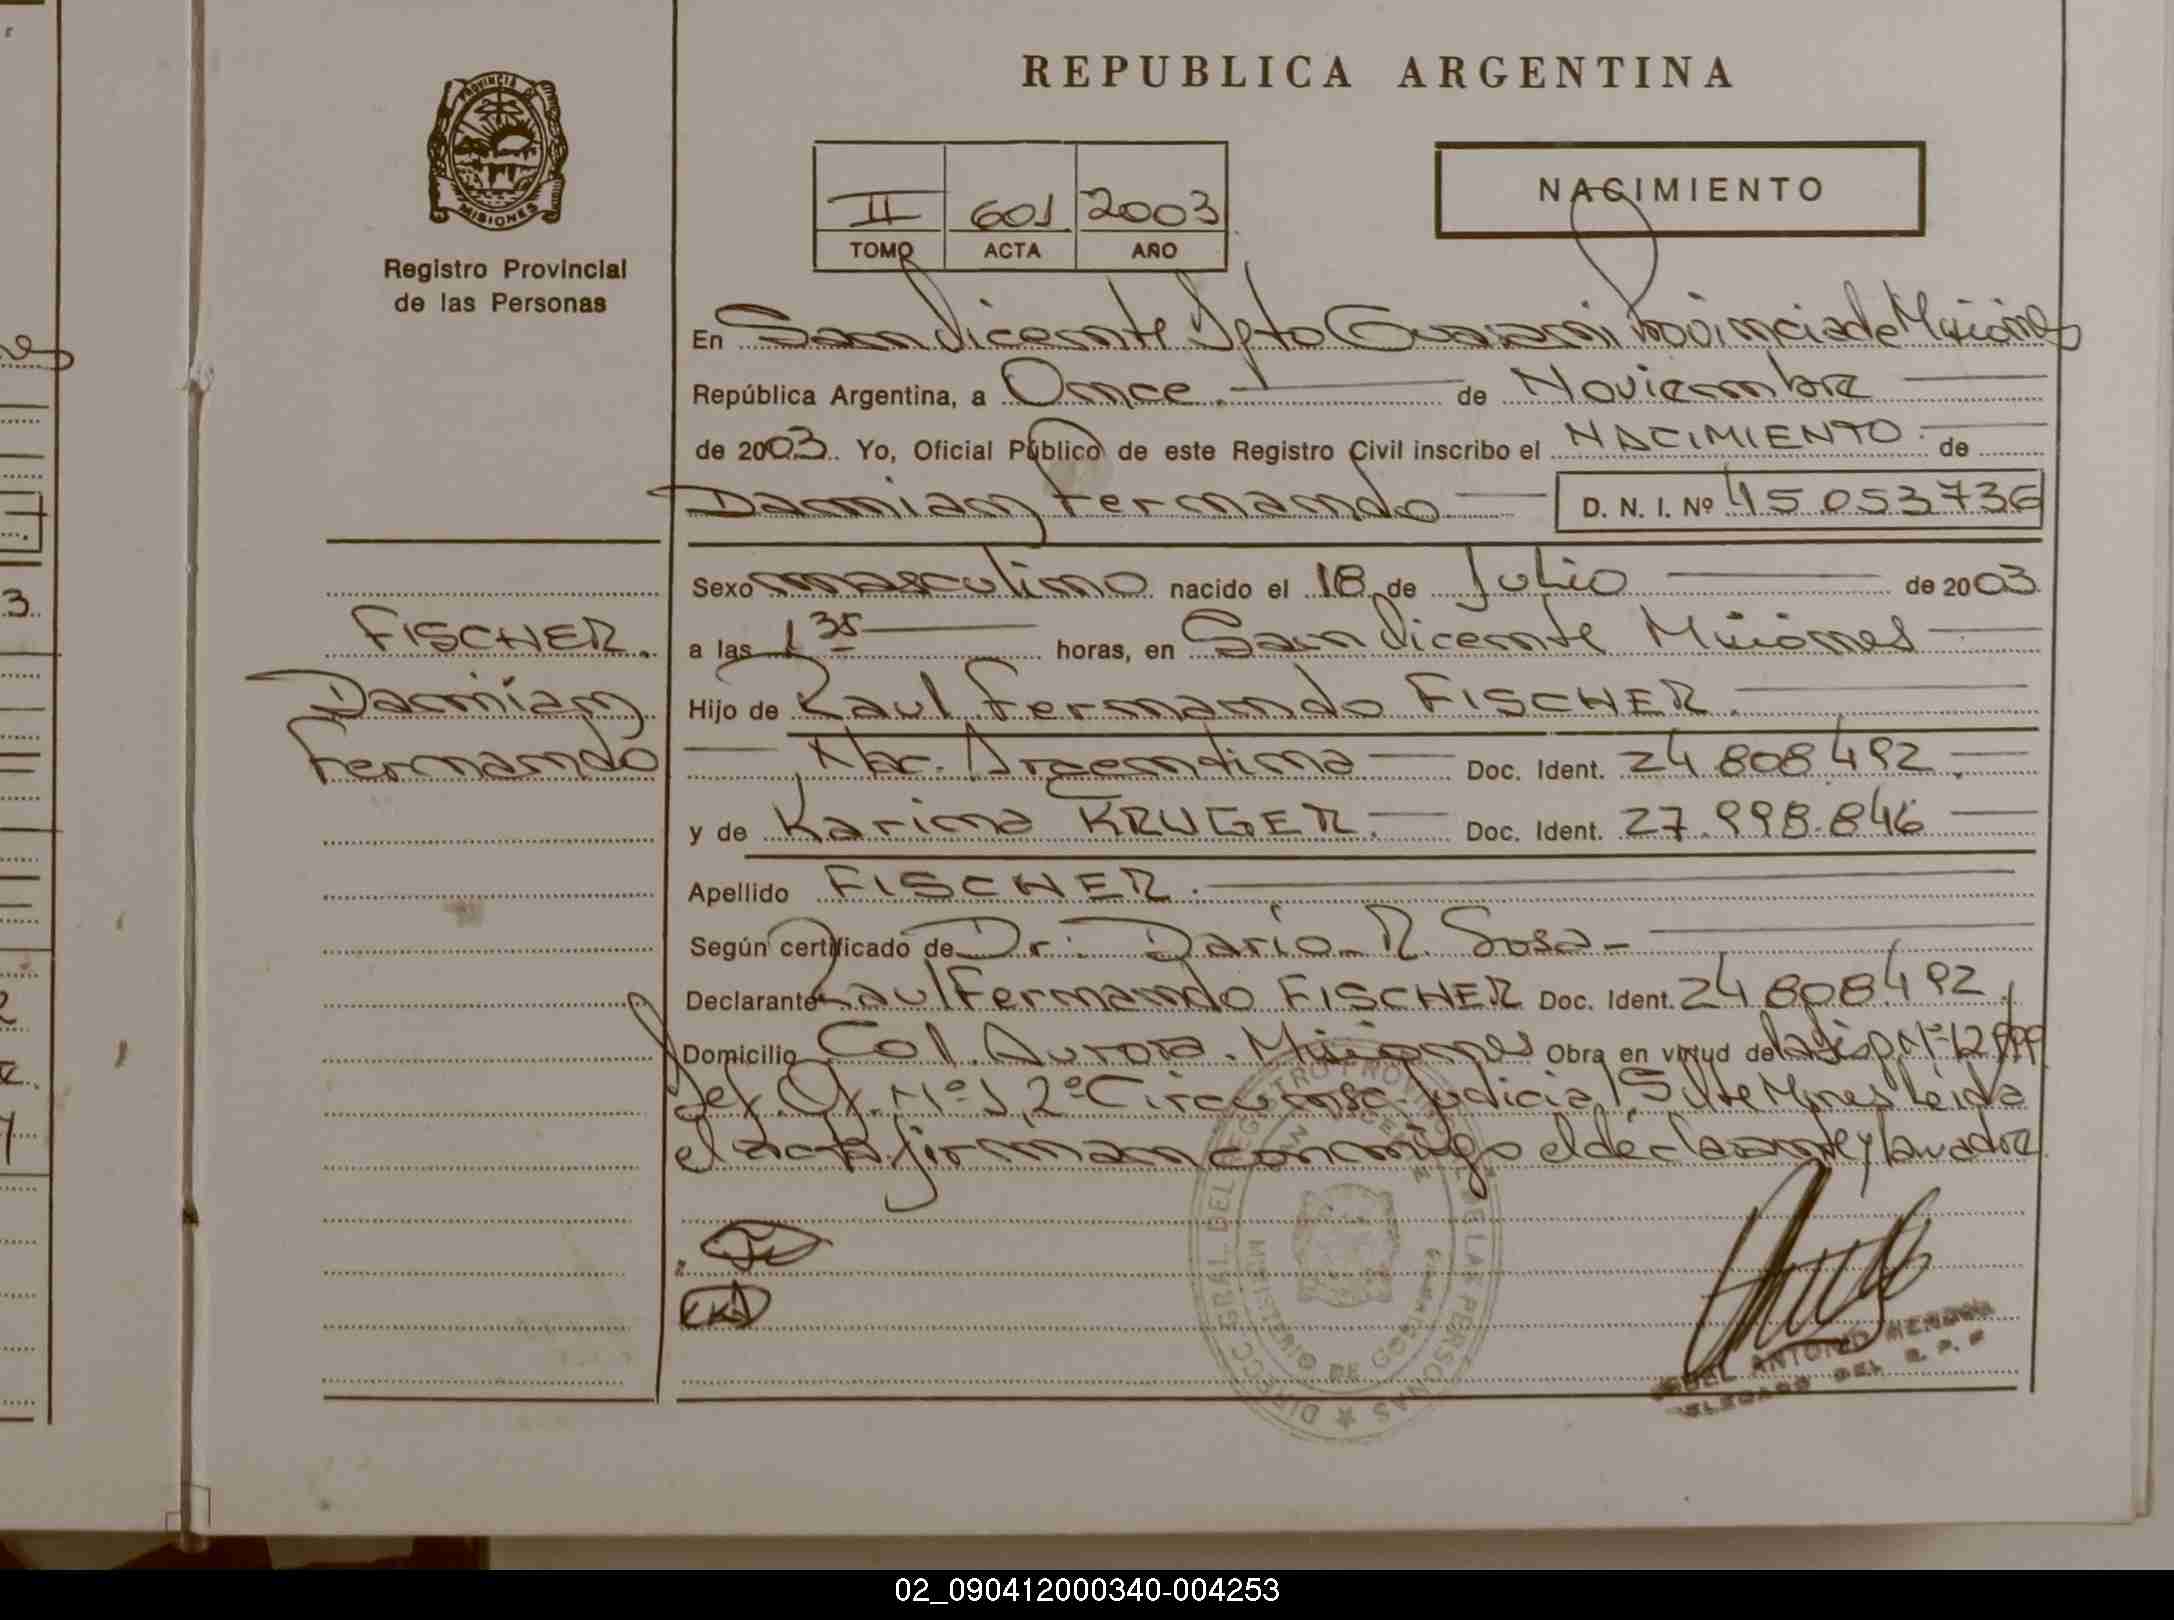 REPUBLICA ARGENTINA
PROVINCIA DE
MISIONES
Registro Provincial
de las Personas
II 601 2003
TOMO ACTA AÑO
NACIMIENTO
En San Vicente Dpto Guarani Provincia de Misiones
República Argentina, a Once. de Noviembre
de 2003. Yo, Oficial Público de este Registro Civil inscribo el NACIMIENTO. de
Damian Fernando D. N. I. Nº 45.053.736
Sexo masculino nacido el 18 de Julio de 2003
a las 1 35 horas, en San Vicente Misiones
Hijo de Raul Fernando FISCHER.
Nac. Argentina Doc. Ident. 24.808.492.
y de Karina KRUGER. Doc. Ident. 27.998.846
Apellido FISCHER.
Según certificado de Dr. Dario R. Sosa-
Declarante Raul Fernando FISCHER Doc. Ident. 24.808.492
Domicilio Col. Aurora. Misiones Obra en virtud de la disp. Nº
Def. Of. Nº 1, 2º Circunsc. Judicial S. Vte Mnes Leida
el acta firman conmigo el declarante y la madre
FISCHER.
Damian
Fernando
DIRECC. GRAL. DEL REGISTRO PROVINCIAL DE LAS PERSONAS
SAN VICENTE
MINISTERIO DE GOBIERNO
ANTONIO
DEL R. P. P
02_090412000340-004253